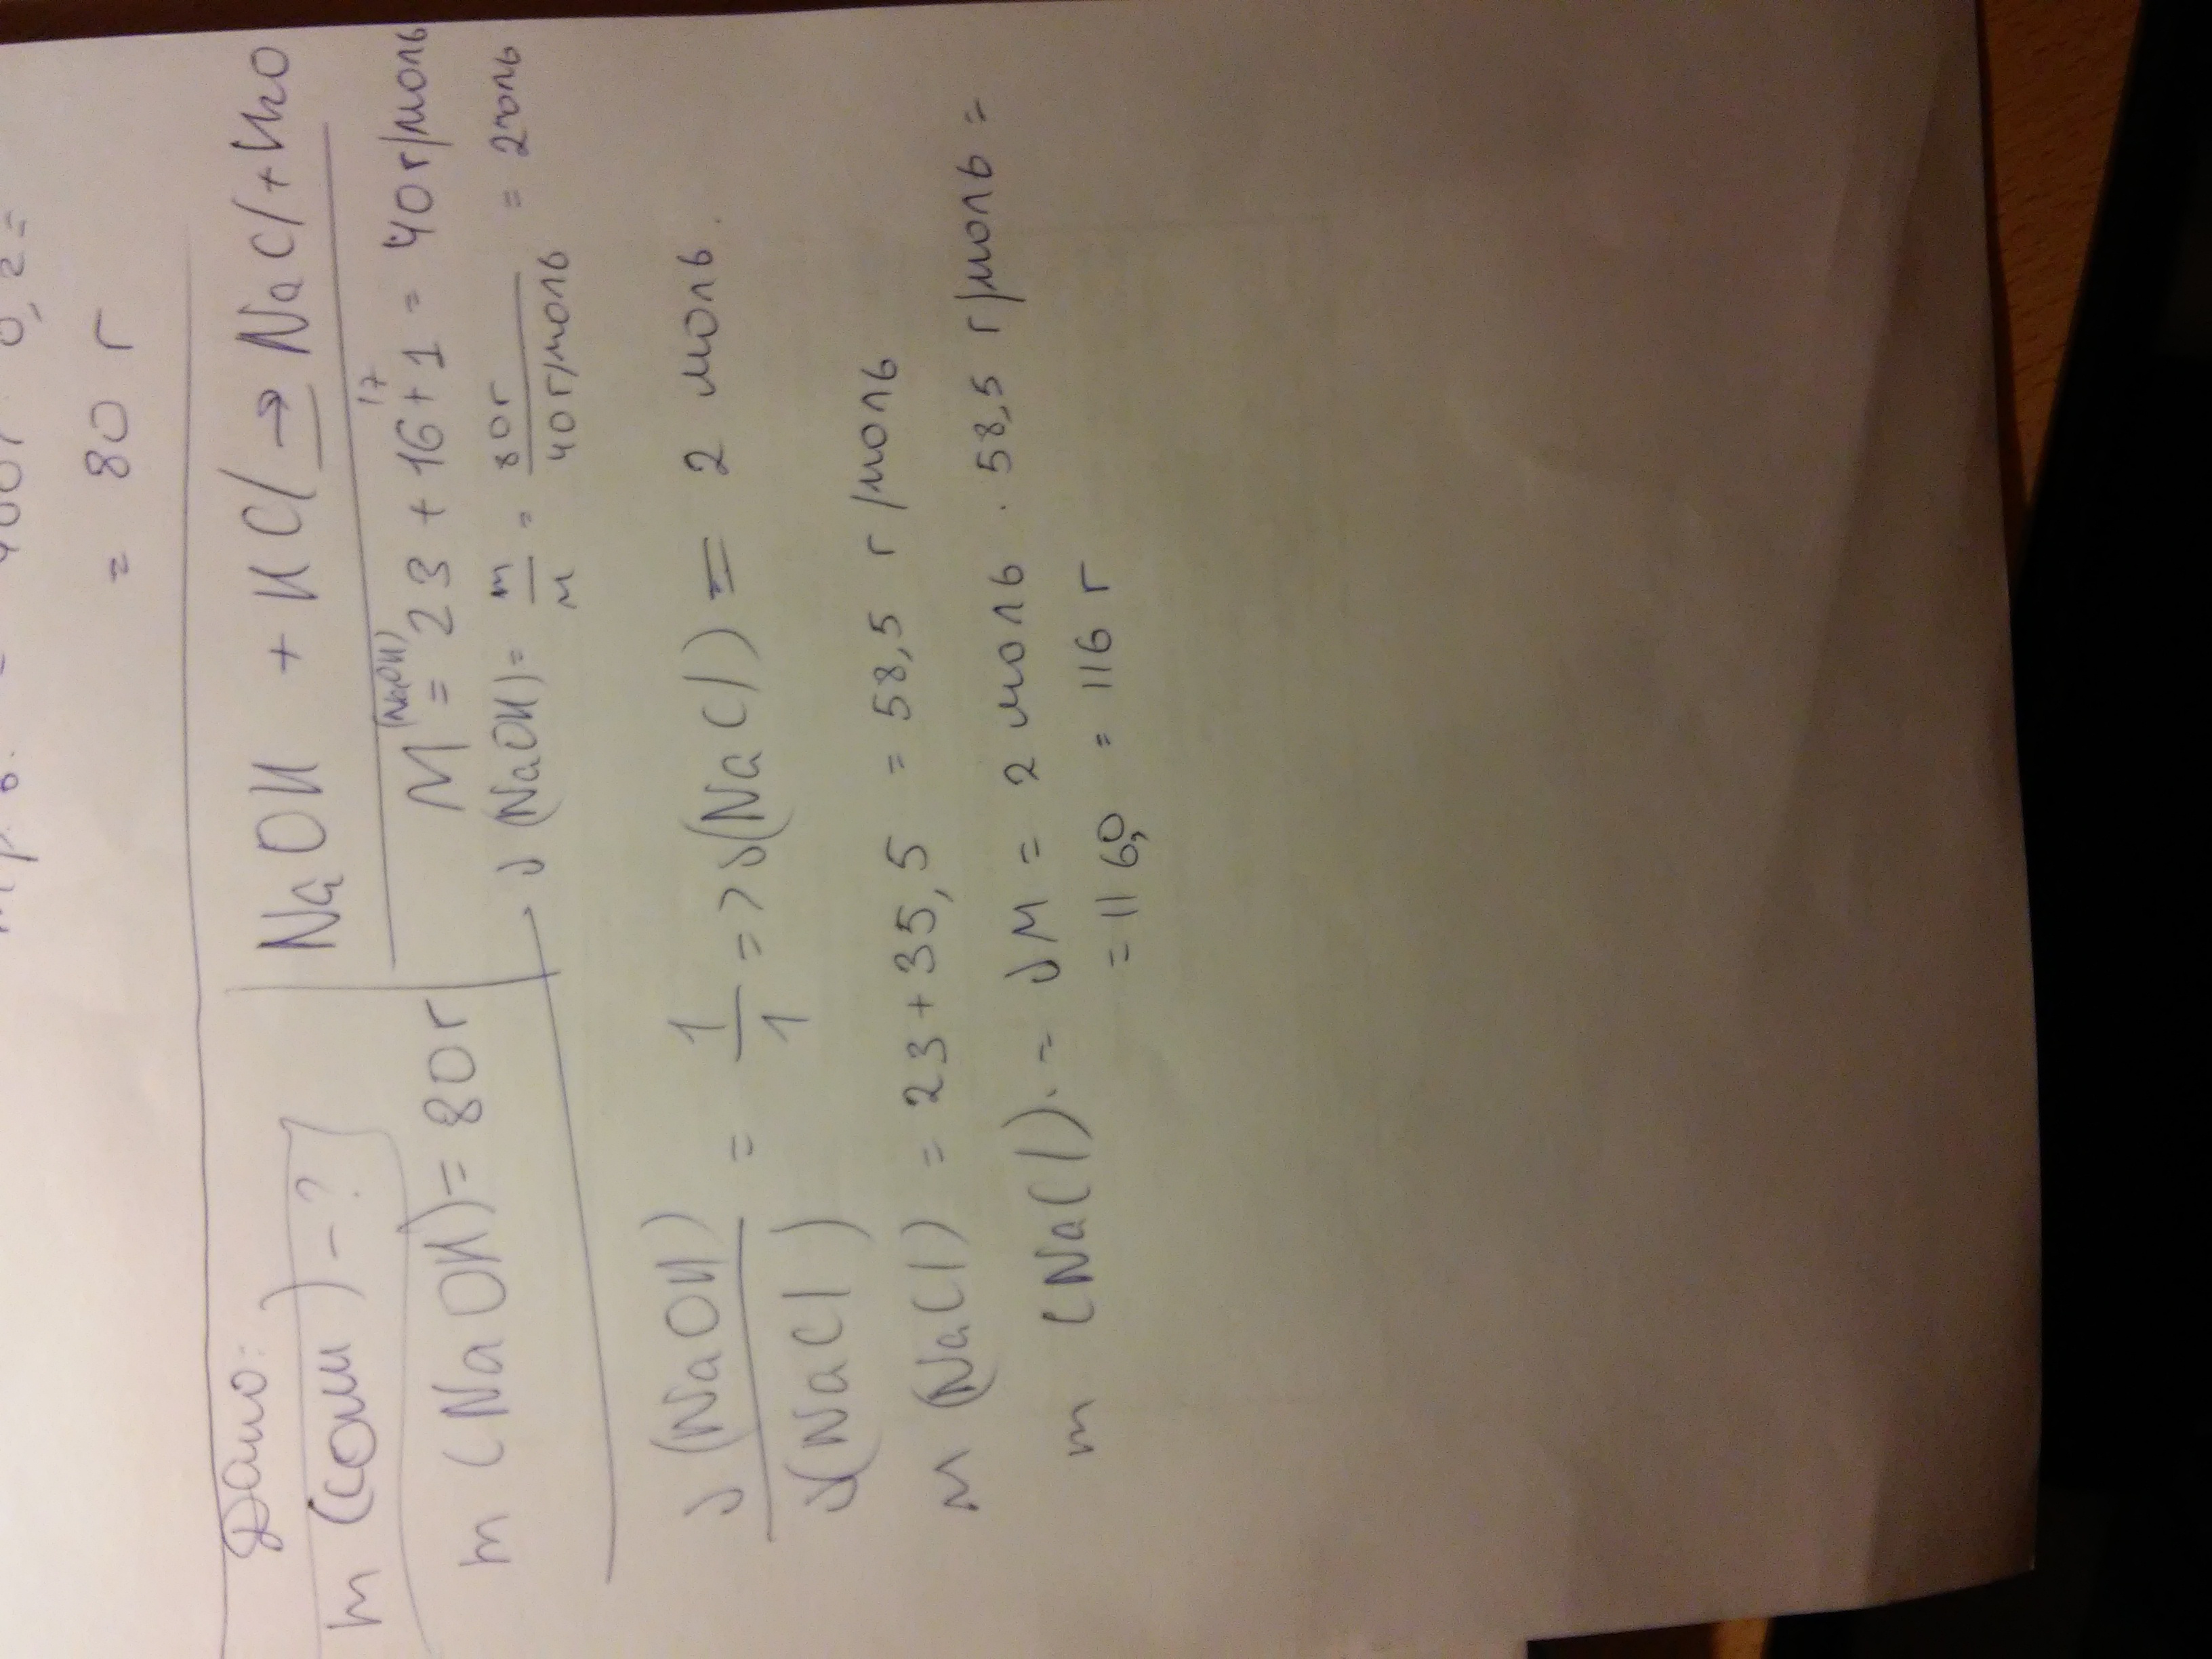 = 80 г
Дано:
m (соли) - ?
NaOH + HCl → NaCl + H2O
m (NaOH) = 80 г
17
M (NaOH) = 23 + 16 + 1 = 40 г/моль
ν (NaOH) = m/M = 80 г/40 г/моль = 2 моль
ν (NaOH)/ν (NaCl) = 1/1 => ν (NaCl) = 2 моль.
M (NaCl) = 23 + 35,5 = 58,5 г/моль
m (NaCl) = νM = 2 моль · 58,5 г/моль =
= 116,0 = 116 г